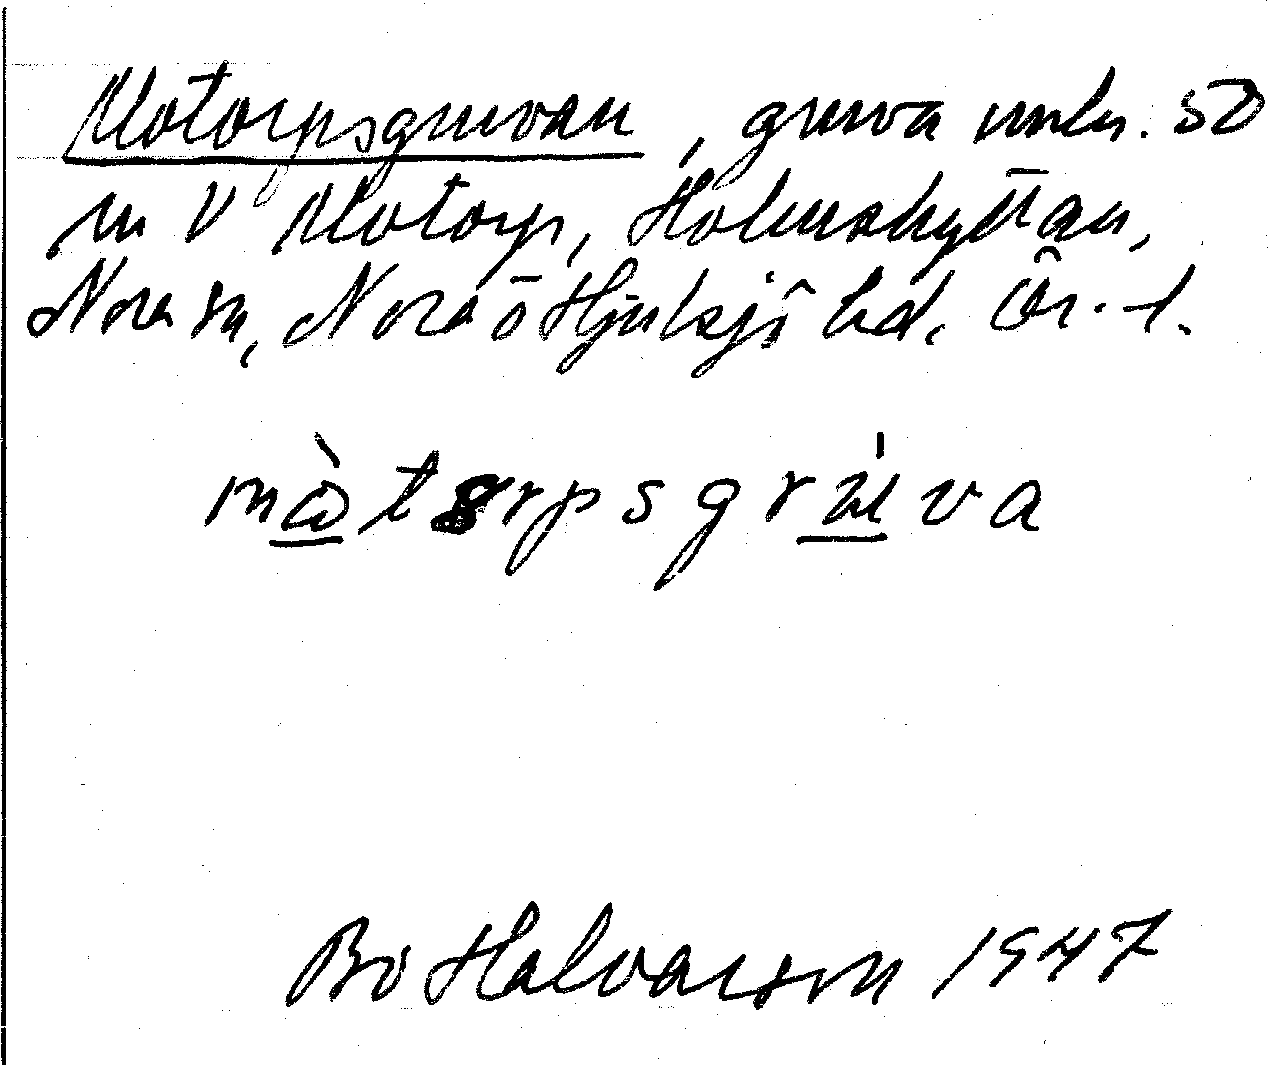 Motorpsgruvan, gruva omkr. 50
m V Motorp, Holmshyttan,
Nora sn, Nora o Hjulsjö hd, Ör. l.
mòtorpsgrúva
Bo Halvarson 1947